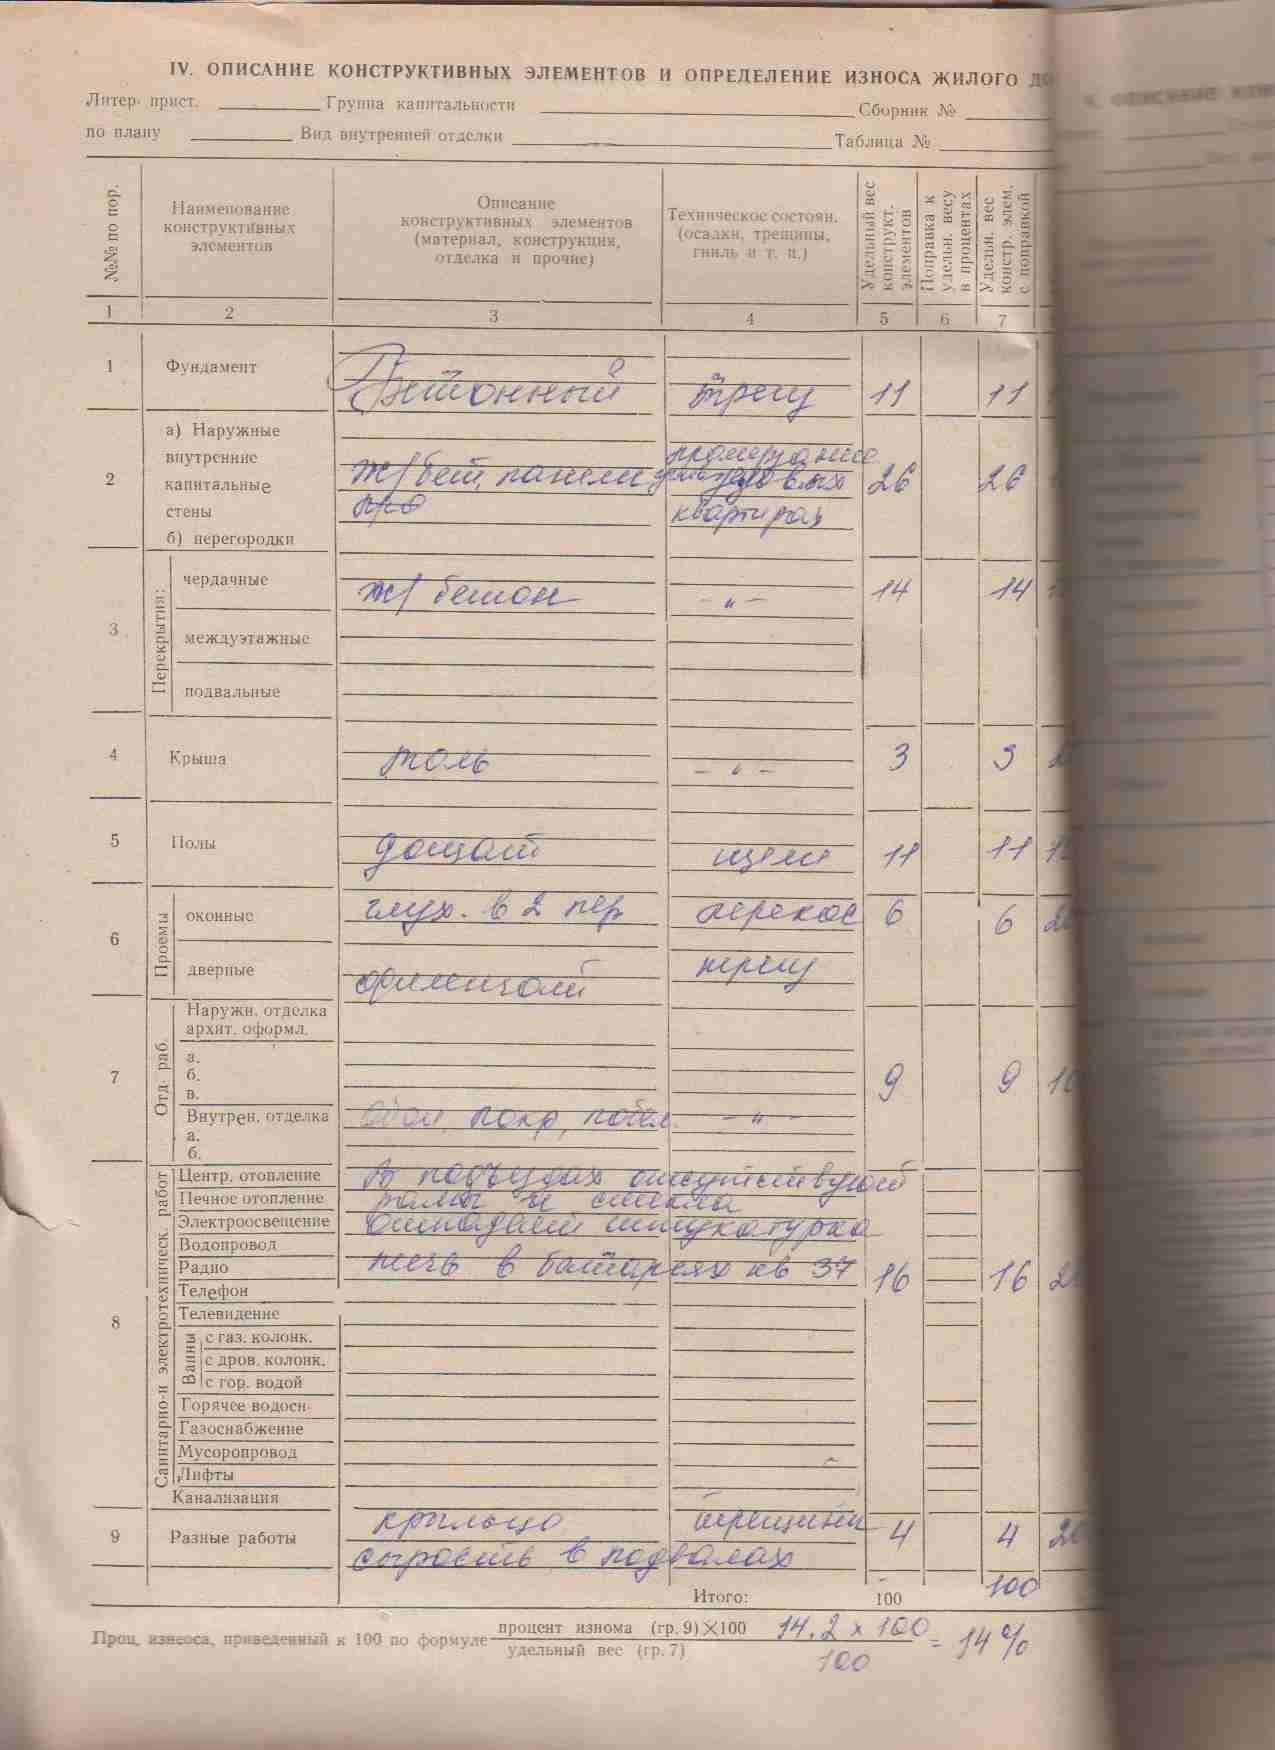 IV. ОПИСАНИЕ КОНСТРУКТИВНЫХ ЭЛЕМЕНТОВ И ОПРЕДЕЛЕНИЕ ИЗНОСА ЖИЛОГО ДО
Литер. прист. Группа капитальности Сборник №
по плану Вид внутренней отделки Таблица №
№№ по пор.
Наименование конструктивных элементов
Описание конструктивных элементов (материал, конструкция, отделка и прочие)
Техническое состоян. (осадки, трещины, гниль и т. п.)
Удельный вес конструкт. элементов
Поправка к удельн. весу в процентах
Удельн. вес констр. элем. с поправкой
1 2 3 4 5 6 7
1 Фундамент Бетонный трещ 11 11
2 а) Наружные внутренние капитальные стены б) перегородки
ж/бет. панели промерзание угловых квартирах 26 26
про
3 Перекрытия:
чердачные ж/бетон -"- 14 14
междуэтажные
подвальные
4 Крыша толь -"- 3 3
5 Полы дощат щели 11 11
6 Проемы
оконные глух. в 2 пер перекос 6 6
дверные филенчат трещ
7 Отд. раб.
Наружн. отделка
архит. оформл.
а.
б.
в. 9 9 10
Внутрен. отделка обои, покр, побел. -"-
а.
б.
8 Санитарно-и электротехническ. работ
Центр. отопление В подъездах отсутствуют
Печное отопление рамы и стекла
Электроосвещение отпадает штукатурка
Водопровод
Радио течь в батареях кв 37 16 16
Телефон
Телевидение
Ванны
с газ. колонк.
с дров. колонк.
с гор. водой
Горячее водосн.
Газоснабжение
Мусоропровод
Лифты
Канализация
9 Разные работы крыльцо трещины 4 4 20
сырость в подвалах
Итого: 100 100
Проц. износа, приведенный к 100 по формуле процент износа (гр. 9)×100 14.2 х 100 = 14%
удельный вес (гр. 7) 100